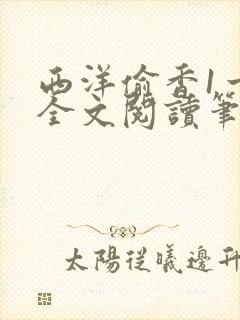 西洋偷香1一
全文閱讀筆
太陽從曦邊升